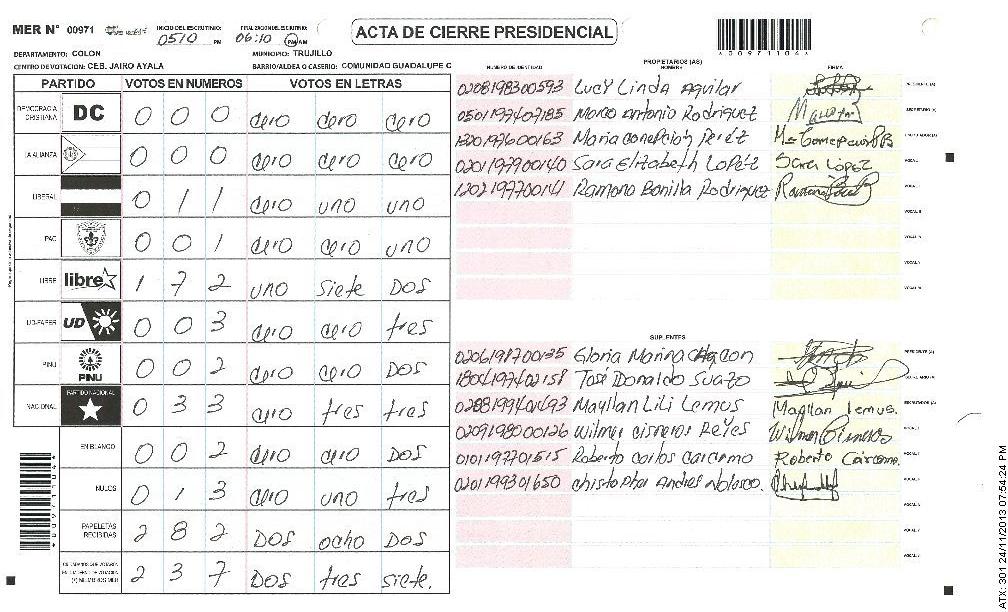 MER N° 00971 INICIO DEL ESCRUTINIO: 0510 PM FINALIZACION DEL ESCRUTINIO: 06:10 PM AM
ACTA DE CIERRE PRESIDENCIAL
*00971104*
DEPARTAMENTO: COLON MUNICIPIO: TRUJILLO
CENTRO DE VOTACION: CEB. JAIRO AYALA BARRIO/ALDEA O CASERIO: COMUNIDAD GUADALUPE C
PARTIDO VOTOS EN NUMEROS VOTOS EN LETRAS
DEMOCRACIA CRISTIANA DC 0 0 0 cero cero cero
LA ALIANZA 0 0 0 cero cero cero
LIBERAL 0 1 1 cero uno uno
PAC 0 0 1 cero cero uno
LIBRE libre 1 7 2 uno siete Dos
UD-FAPER UD 0 0 3 cero cero tres
PINU PINU 0 0 2 cero cero Dos
NACIONAL PARTIDO NACIONAL 0 3 3 cero tres tres
EN BLANCO 0 0 2 cero cero Dos
NULOS 0 1 3 cero uno tres
PAPELETAS RECIBIDAS 2 8 2 Dos ocho Dos
(+) MIEMBROS MER 2 3 7 Dos tres siete.
PROPIETARIOS (AS)
NUMERO DE IDENTIDAD NOMBRE FIRMA
0208198300593 Lucy Linda Aquilar PRESIDENTE (A)
0501197407185 Marco Antonio Rodriquez SECRETARIO (A)
Maria concepcion Perez ESCRUTADOR (A)
0201197900140 Sara Elizabeth Lopez Sara López VOCAL I
1202197700141 Ramona Bonilla Rodriquez VOCAL II
SUPLENTES
Gloria Marina PRESIDENTE (A)
José Donaldo Suazo SECRETARIO (A)
Mayllan Lili Lemus Mayllan lemus. ESCRUTADOR (A)
0209198000126 Wilmer cisneros Reyes
0101197701515 Roberto carlos carcamo Roberto Carcamo.
0201199301650 christopher Andres Nolasco.
*00971104*
ATX: 301 24/11/2013 07:54:24 PM